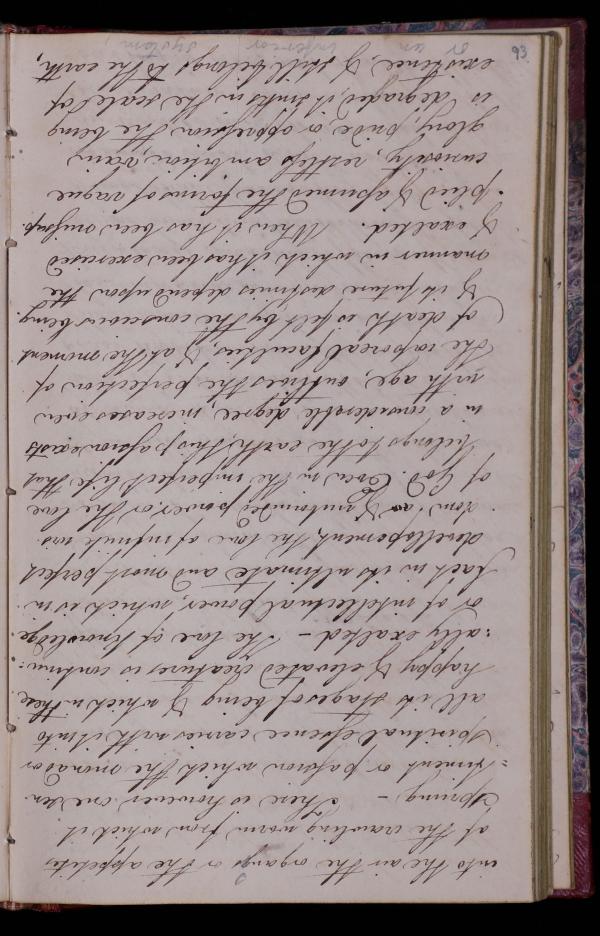 into the air the organs or the appetites
of the crawling worm from which it
sprung – There is however one sen
=timent or passion which the monad or
spiritual essence carries with it into
all its stages of being & which in these
happy & elevated creatures is continu
=ally exalted – the love of knowledge
or of intellectual power, which is in
fact in its ultimate and most perfect
developement, the love of infinite wis
dom & unbounded power or the love
of God. Even in the imperfect life that
belongs to the earth, this passion exists
in a considerable degree, increases even
with age, outlives the perfection of
the corporeal faculties, & at the moment
of death is felt by the conscious being.
& its future destinies depend upon the
manner in which it has been exercised
& exalted. When it has been misap
plied & assumed the forms of vague
curiosity, restless ambition, vain
glory, pride, or oppression the being
is degraded, it sinks in the scale of
existence, & still belongs to the earth,
or an inferior system,
93